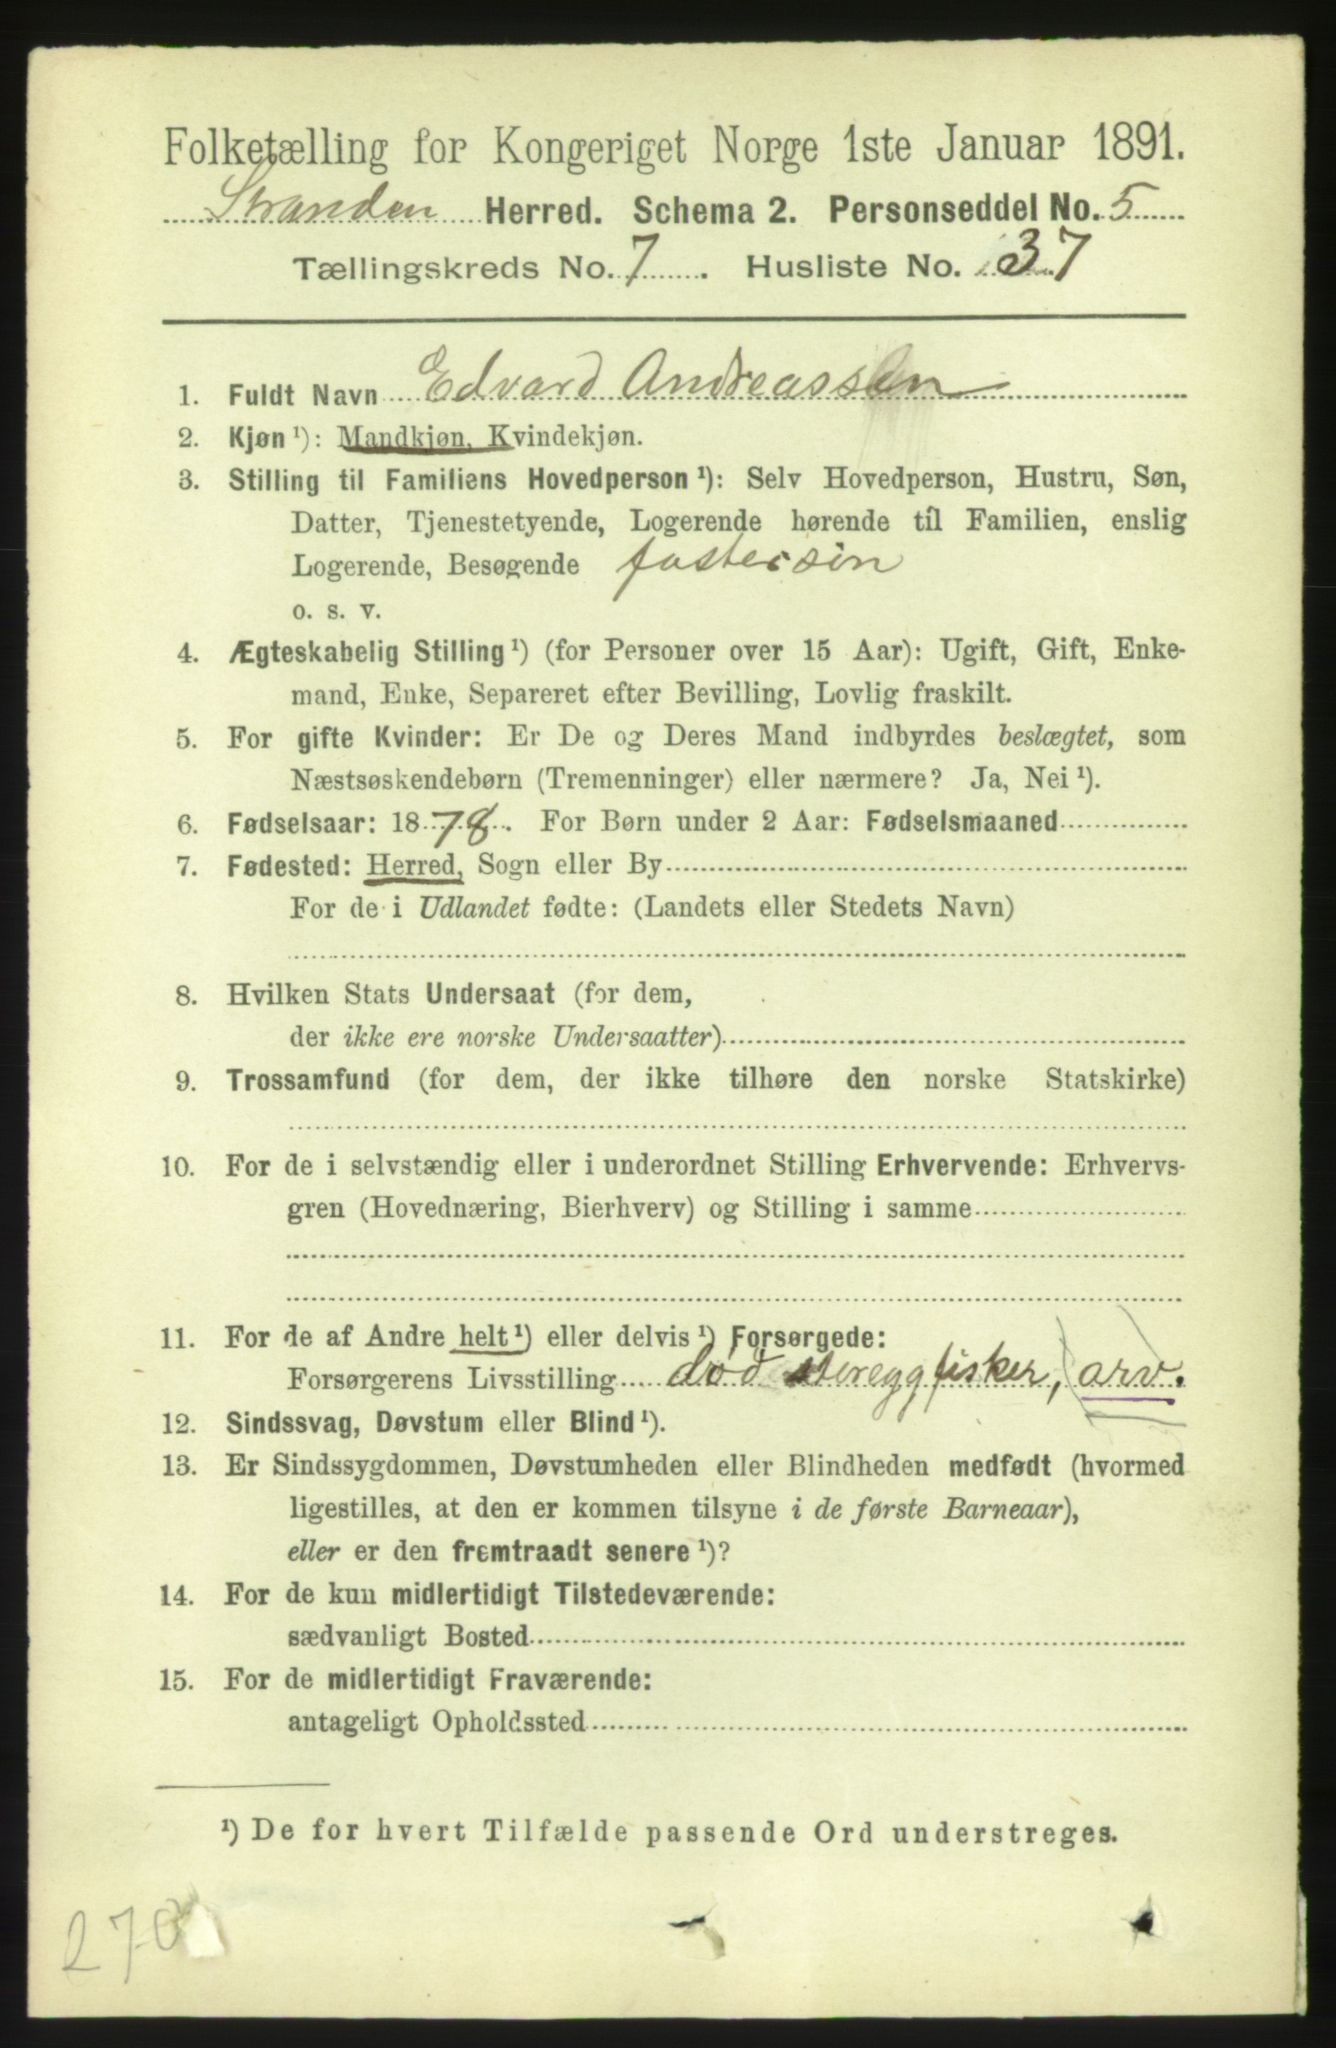 Folketælling for Kongeriget Norge 1ste Januar 1891.
Stranden Herred. Schema 2. Personseddel No. 5
Tællingskreds No. 7. Husliste No. 37
1. Fuldt Navn Edvard Andreassen
2. Kjøn¹): Mandkjøn, Kvindekjøn.
3. Stilling til Familiens Hovedperson¹): Selv Hovedperson, Hustru, Søn,
Datter, Tjenestetyende, Logerende hørende til Familien, enslig
Logerende, Besøgende fostersøn
o. s. v.
4. Ægteskabelig Stilling¹) (for Personer over 15 Aar): Ugift, Gift, Enke-
mand, Enke, Separeret efter Bevilling, Lovlig fraskilt.
5. For gifte Kvinder: Er De og Deres Mand indbyrdes beslægtet, som
Næstsøskendebørn (Tremenninger) eller nærmere? Ja, Nei¹).
6. Fødselsaar: 1878. For Børn under 2 Aar: Fødselsmaaned
7. Fødested: Herred, Sogn eller By
For de i Udlandet fødte: (Landets eller Stedets Navn)
8. Hvilken Stats Undersaat (for dem,
der ikke ere norske Undersaatter)
9. Trossamfund (for dem, der ikke tilhøre den norske Statskirke)
10. For de i selvstændig eller i underordnet Stilling Erhvervende: Erhvervs-
gren (Hovednæring, Bierhverv) og Stilling i samme
11. For de af Andre helt¹) eller delvis¹) Forsørgede:
Forsørgerens Livsstilling død fisker, arv.
12. Sindssvag, Døvstum eller Blind¹).
13. Er Sindssygdommen, Døvstumheden eller Blindheden medfødt (hvormed
ligestilles, at den er kommen tilsyne i de første Barneaar),
eller er den fremtraadt senere¹)?
14. For de kun midlertidigt Tilstedeværende:
sædvanligt Bosted
15. For de midlertidigt Fraværende:
antageligt Opholdssted
¹) De for hvert Tilfælde passende Ord understreges.
270